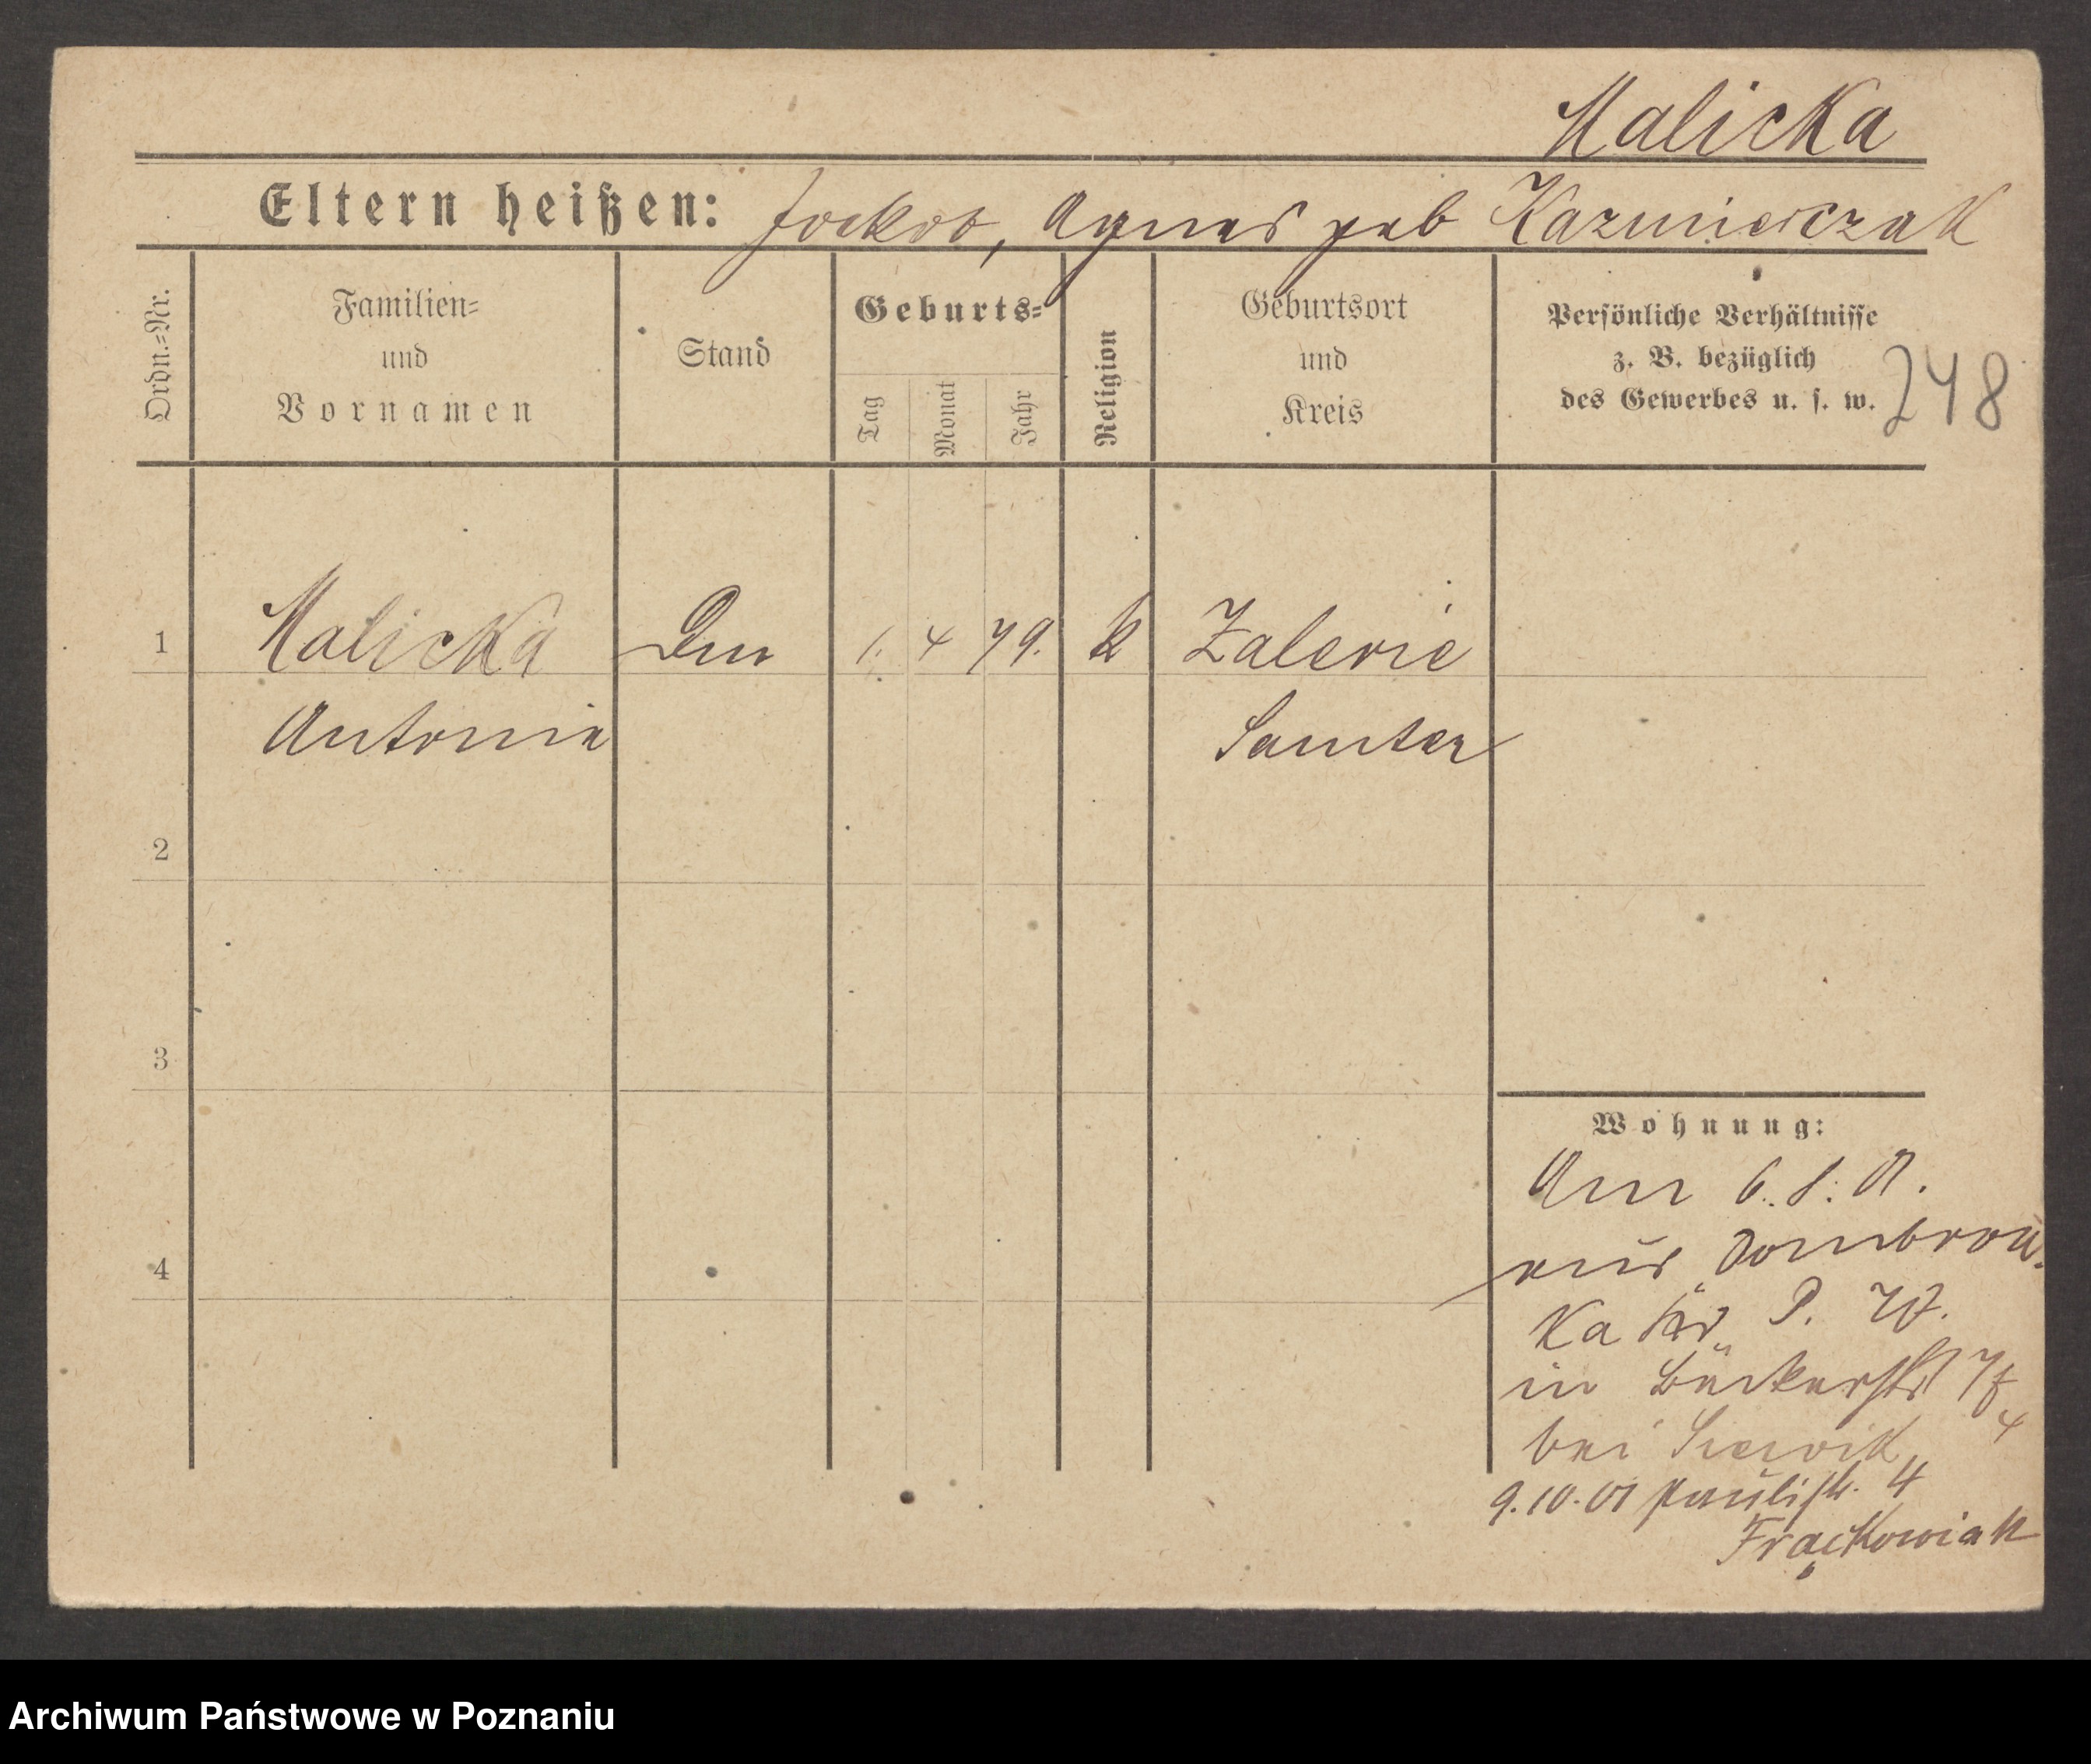 Malicka
Eltern heißen: Jackob, Agnes geb Kazmierczak
Ordn.-Nr.
Familien-
und
Vornamen
Stand
Geburts-
Tag
Monat
Jahr
Religion
Geburtsort
und
Kreis
Persönliche Verhältnisse
z. B. bezüglich
des Gewerbes u. s. w.
248
1 Malicka 1. 4 79. k Zalerie
Antonie Samter
2
3
4
Wohnung:
Am 6. 8. 01.
aus Dombrow-
ka Kr. P. W.
in Bäckerstr
bei
9.10.01 Paulistr. 4
Frąckowiak
Archiwum Państwowe w Poznaniu